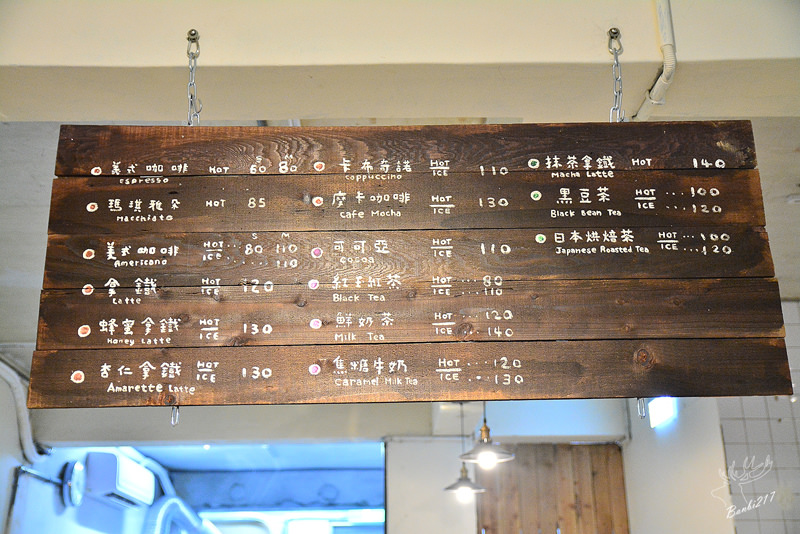 S M
美式咖啡 HOT 60 80
espresso
瑪琪雅朵 HOT 85
Macchiato
S M
美式咖啡 HOT ... 80 110
Americano ICE ... 110
拿鐵 HOT ICE 120
Latte
蜂蜜拿鐵 HOT ICE 130
Honey Latte
杏仁拿鐵 HOT ICE 130
Amarette Latte
卡布奇諾 HOT ICE 110
Coppuccino
摩卡咖啡 HOT ICE 130
Cafe Mocha
可可亞 HOT ICE 110
Cocoa
紅玉紅茶 HOT ... 80
Black Tea ICE ... 110
鮮奶茶 HOT ... 120
Milk Tea ICE ... 140
焦糖牛奶 HOT ... 120
Caramel Milk Tea ICE ... 130
抹茶拿鐵 HOT 140
Macha Latte
黑豆茶 HOT ... 100
Black Bean Tea ICE ... 120
日本烘焙茶 HOT ... 100
Japanese Roasted Tea ICE ... 120
Banbi217